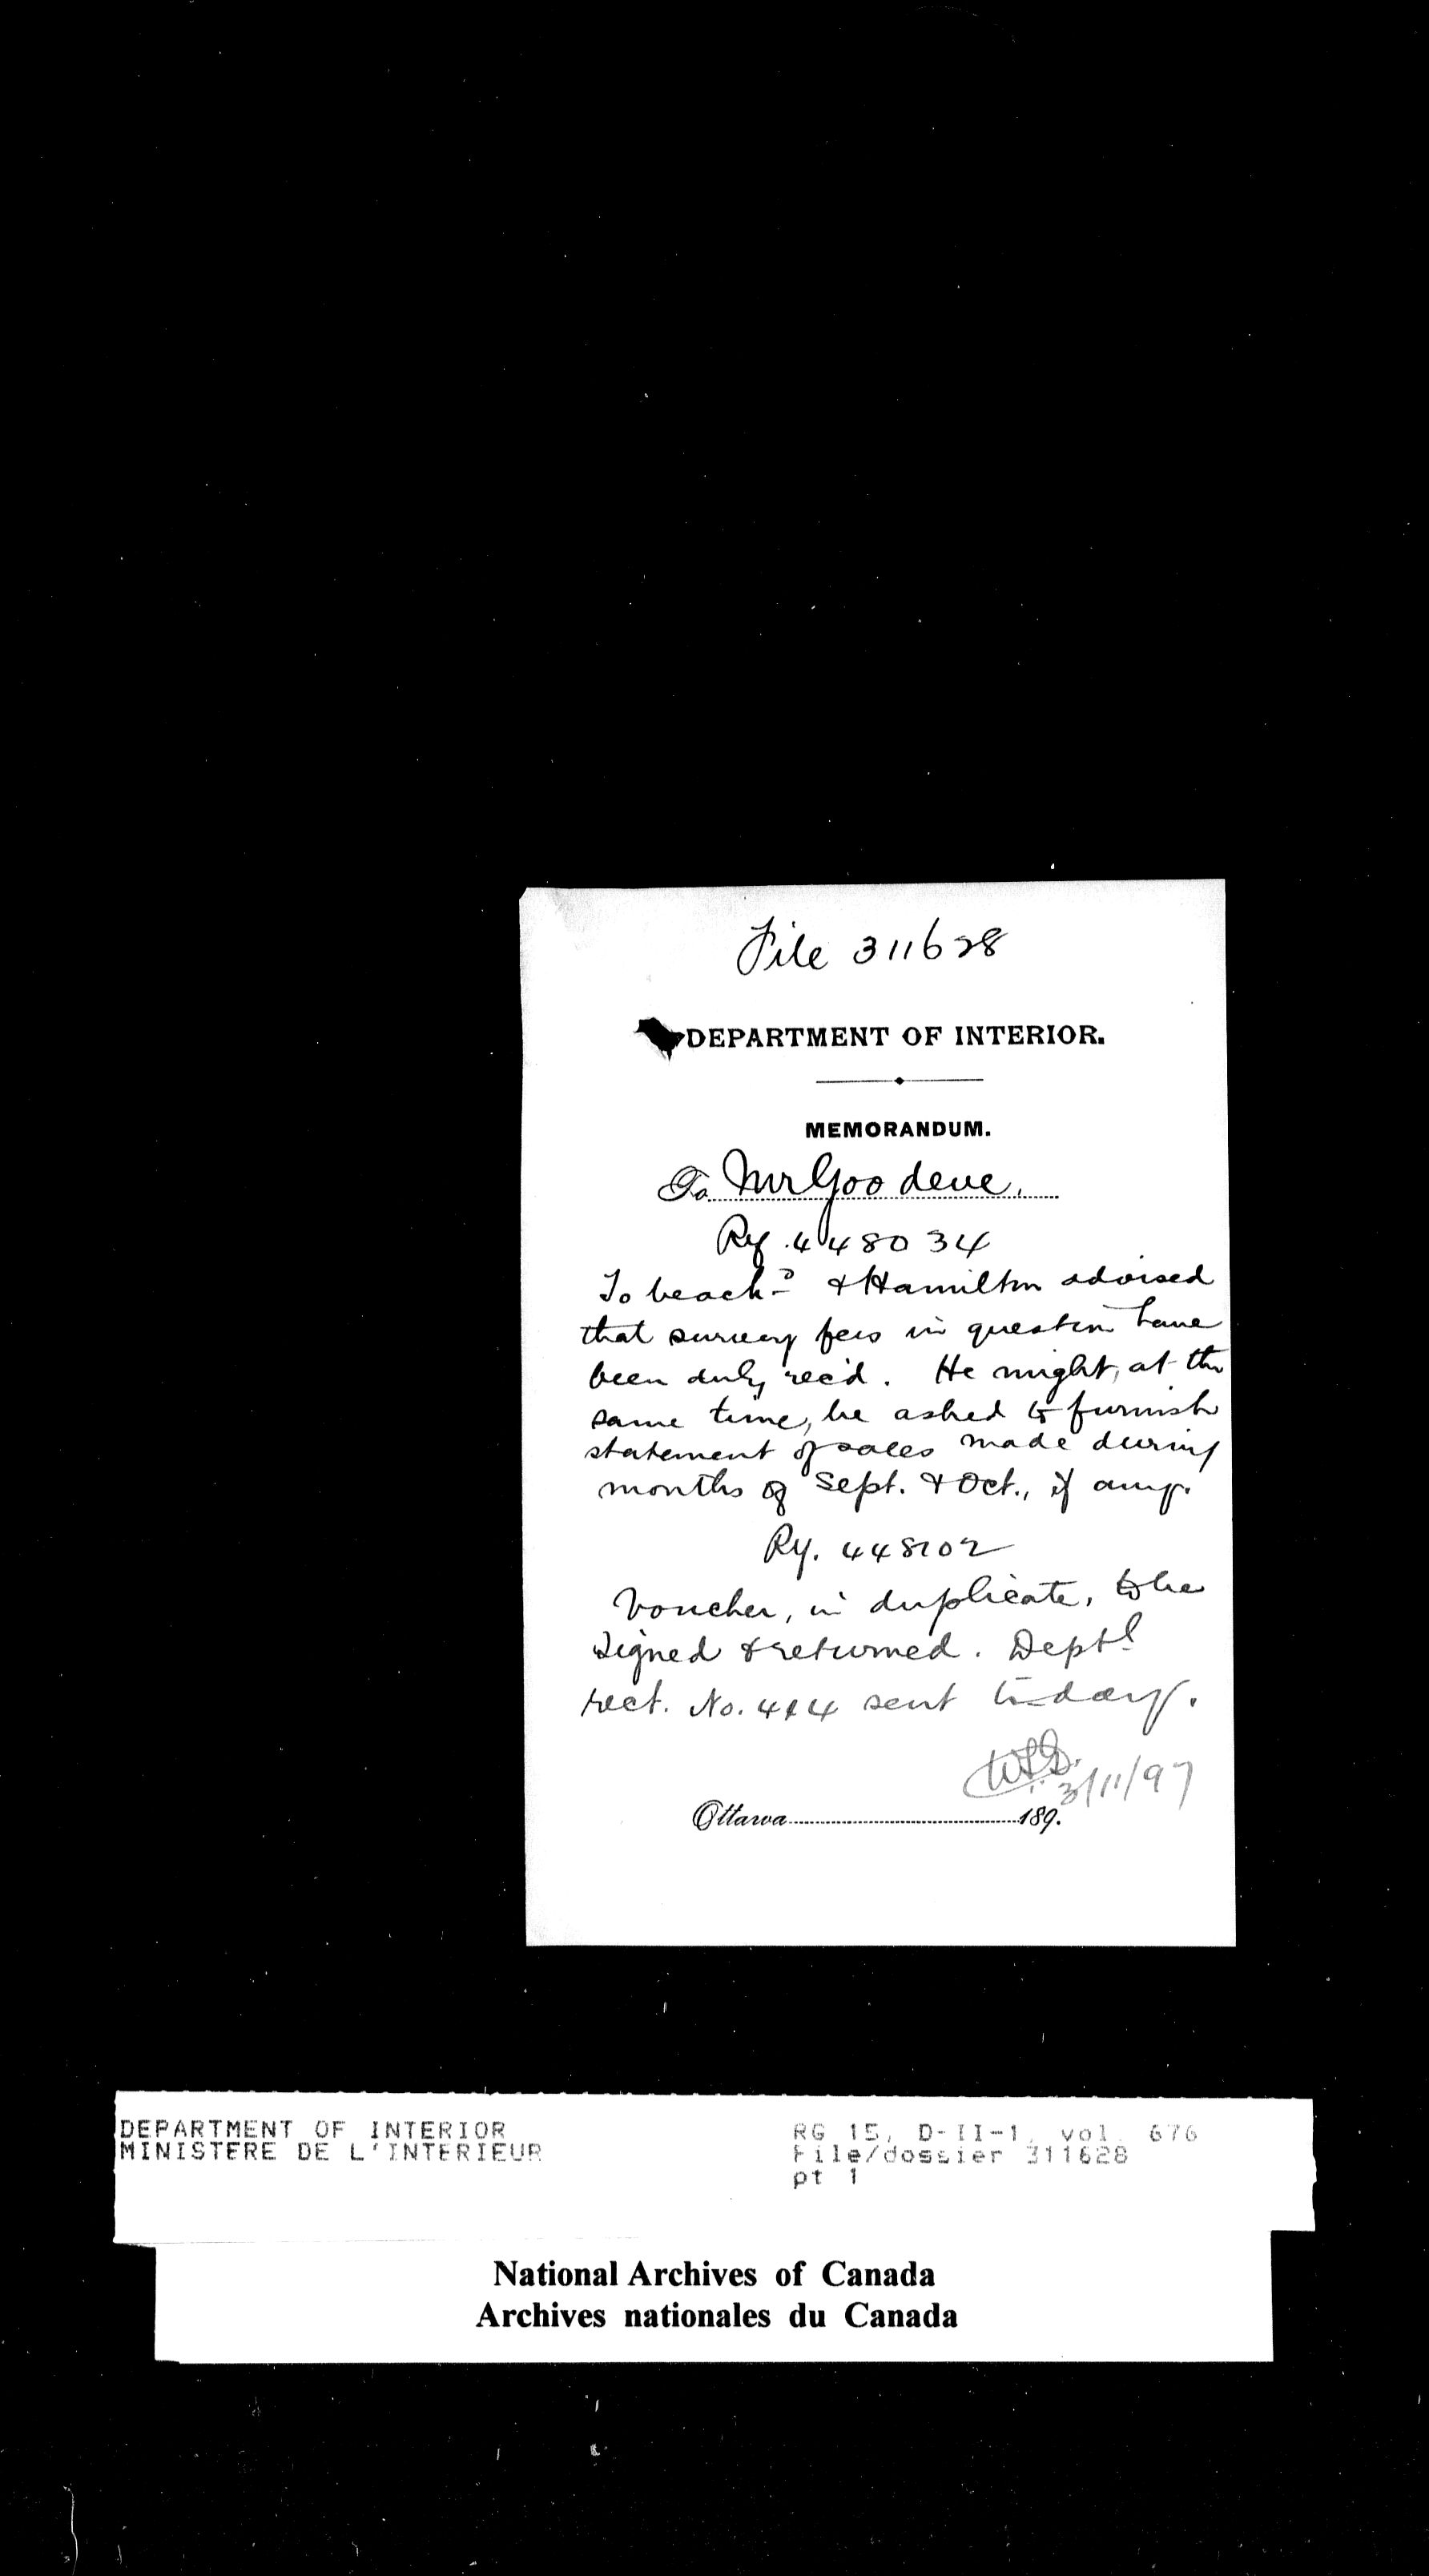 File 311628
DEPARTMENT OF INTERIOR.
MEMORANDUM.
To Mr Goodeve.
Ref. 448034
To be ackd & Hamilton advised
that survey fees in question have
been duly rec'd. He might, at the
same time, be asked to furnish
statement of sales made during
months of Sept. & Oct., if any.
Ref. 448102
Voucher, in duplicate, to be
signed & returned. Deptl
rect. No. 414 sent to-day.
3/11/97
Ottawa 189.
DEPARTMENT OF INTERIOR
MINISTERE DE L'INTERIEUR
RG 15, D-II-1, vol. 676
File/dossier 311628
pt 1
National Archives of Canada
Archives nationales du Canada